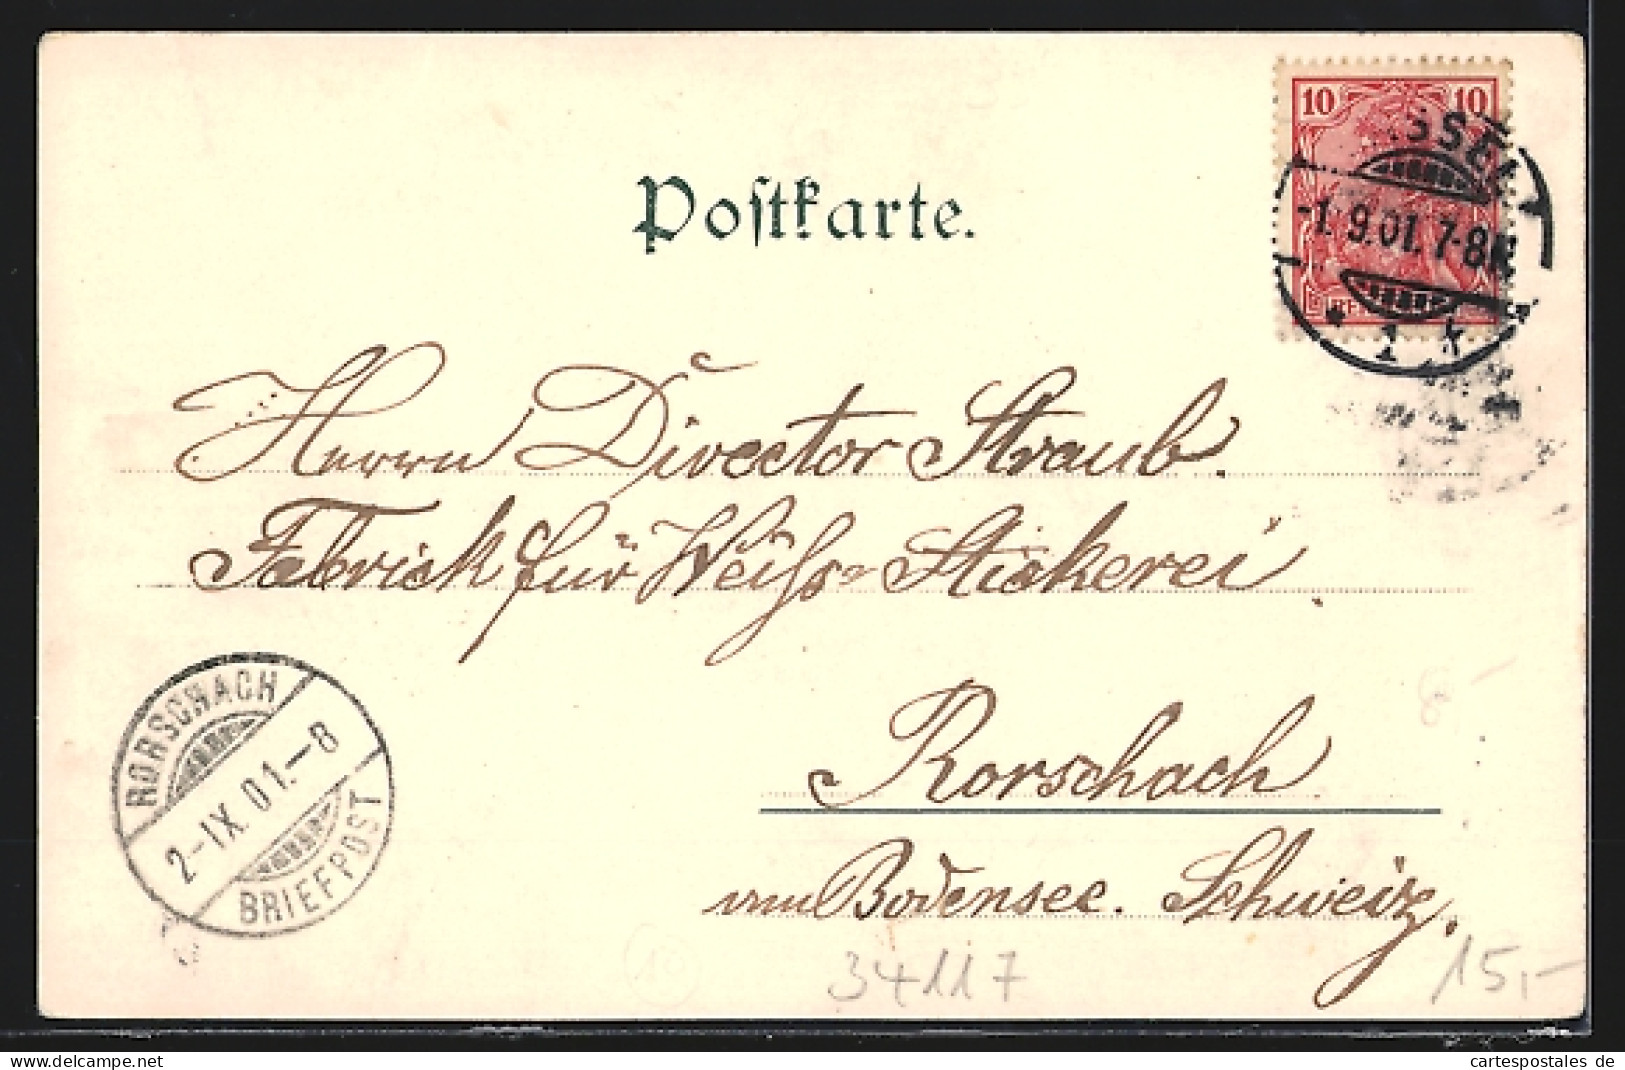 10 10
SSEL
-1.9.01.7-8N.
* 1 k
Postkarte.
Herrn Director Straub.
Fabrick für Weiß-Stickerei.
Rorschach
am Bodensee. Schweiz.
RORSCHACH
2-IX.01.-8
BRIEFPOST
34117
15,-
8-
cartespostales.de